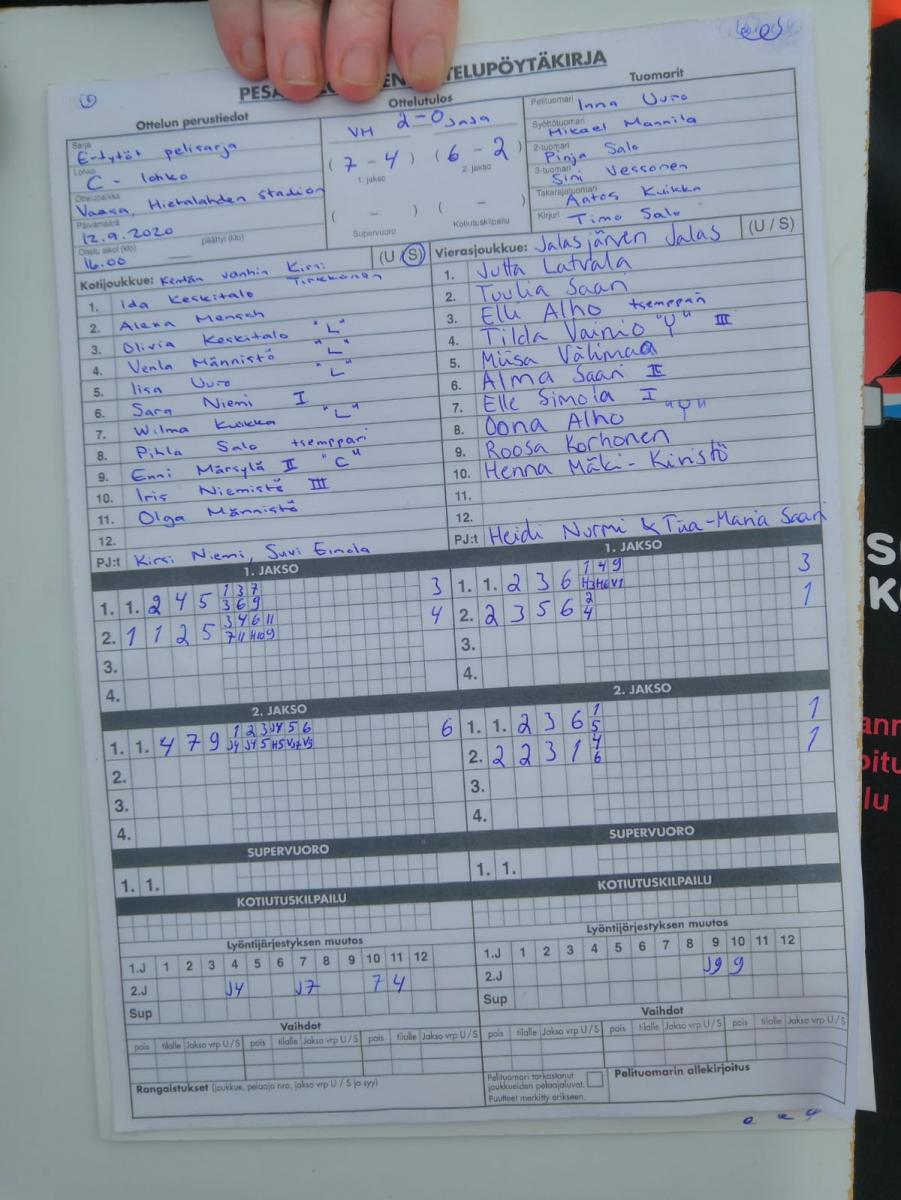 PESÄ
TELUPÖYTÄKIRJA
Ottelun perustiedot
Sarja
E-tytöt pelisarja
Lohko
C - lohko
Ottelupaikka
Vaasa, Hietalahden stadion
Päivämäärä
12.9.2020
Ottelu alkoi (klo) päättyi (klo)
16.00
Ottelutulos
VM 2-0 JaJa
(7 - 4) (6 - 2)
1. jakso 2. jakso
( - ) ( - )
Supervuoro Kotiutuskilpailu
Tuomarit
Pelituomari Inna Uuro
Syöttötuomari Mikael Mannila
2-tuomari Pinja Salo
3-tuomari Sini Vessonen
Takarajatuomari Aatos Kuikka
Kirjuri Timo Salo
Kotijoukkue: Kentän vanhin Kirsi (U / S)
1. Ida Keskitalo
2. Alexa Mensah
3. Olivia Keskitalo "L"
4. Venla Männistö "L"
5. Iisa Uuro "L"
6. Sara Niemi I
7. Wilma Kuikka "L"
8. Pihla Salo tsemppari
9. Enni Märsylä II "C"
10. Iris Niemistö III
11. Olga Männistö
12.
PJ:t Kirsi Niemi, Suvi Einola
Vierasjoukkue: Jalasjärven Jalas (U / S)
1. Jutta Latvala
2. Tuulia Saari
3. Elli Alho tsemppäri
4. Tilda Vainio "Y" III
5. Miisa Välimaa
6. Alma Saari II
7. Elle Simola I
8. Oona Alho "Y"
9. Roosa Korhonen
10. Henna Mäki-Kiristö
11.
12.
PJ:t Heidi Nurmi & Tiia-Maria Saari
1. JAKSO
1. 1. 2 4 5 1 3 7 3
3 6 9
2. 1 1 2 5 3 4 6 11 4
7 11 H10 9
3.
4.
1. JAKSO
1. 1. 2 3 6 1 4 9 3
H3 H6 V1
2. 2 3 5 6 2 1
4
3.
4.
2. JAKSO
1. 1. 4 7 9 1 2 3 J4 5 6 6
J4 J4 5 H5 VJ7 V9
2.
3.
4.
2. JAKSO
1. 1. 2 3 6 1 1
5
2. 2 2 3 1 4 1
6
3.
4.
SUPERVUORO
1. 1.
SUPERVUORO
1. 1.
KOTIUTUSKILPAILU
KOTIUTUSKILPAILU
Lyöntijärjestyksen muutos
1.J 1 2 3 4 5 6 7 8 9 10 11 12
2.J J4 J7 7 4
Sup
Lyöntijärjestyksen muutos
1.J 1 2 3 4 5 6 7 8 9 10 11 12
2.J J9 9
Sup
Vaihdot
pois tilalle Jakso vrp U / S pois tilalle Jakso vrp U / S pois tilalle Jakso vrp U / S
Vaihdot
pois tilalle Jakso vrp U / S pois tilalle Jakso vrp U / S pois tilalle Jakso vrp U / S
Rangaistukset (joukkue, pelaaja nro, jakso vrp U / S ja syy)
Pelituomari tarkastanut
joukkueiden pelaajaluvat.
Puutteet merkitty erikseen.
Pelituomarin allekirjoitus